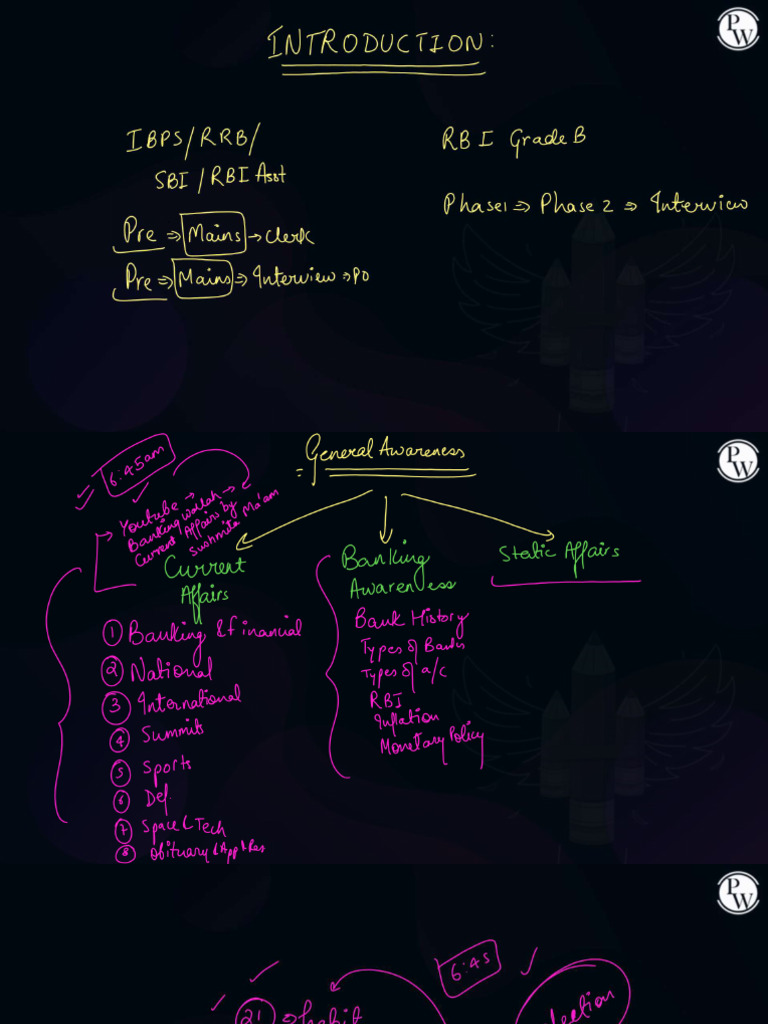 PW
INTRODUCTION:
IBPS/RRB/
SBI/RBI Asst
Pre ⇒ Mains → Clerk
Pre ⇒ Mains ⇒ Interview ⇒ PO
RBI Grade B
Phase1 ⇒ Phase 2 ⇒ Interview
PW
General Awareness
6:45am
Youtube →
Banking wallah →
Current Affairs by
Sushmita Ma'am
Current
Affairs
① Banking & Financial
② National
③ International
④ Summits
⑤ Sports
⑥ Def.
⑦ Space & Tech
⑧ Obituary & App & Res
Banking
Awareness
Bank History
Types of Banks
Types of a/c
RBI
Inflation
Monetary Policy
Static Affairs
PW
6:45
21 → habit